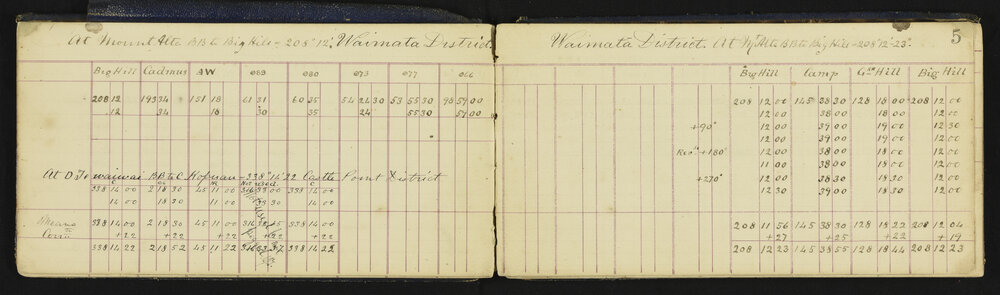 At Mount Alto BB to Big Hill - 208° 12'. Waimata District.
Big Hill Cadmus AW 089 080 073 077 066
208 12 193 34 151 18 61 31 60 35 54 24 30 53 55 30 98 59 00
12 34 18 30 35 24 55 30 59 00
At D BB to C 338° 14' 22 Castle Point District
338 14 00 2 18 30 45 11 00 338 14 00
14 00 18 30 11 00 14 00
Means 338 14 00 2 18 30 45 11 00 338 14 00
Corrn +22 +22 +22 +22 +22
338 14 22 2 18 52 45 11 22 338 14 22
5
Waimata District. At Mt Alto BB to Big Hill - 208° 12' 23".
Big Hill Camp Gt Hill Big Hill
208 12 00 145 38 30 128 18 00 208 12 00
12 00 38 00 18 00 12 00
+90° 12 00 39 00 19 00 12 30
12 00 39 00 19 00 12 00
+180° 12 00 38 00 18 00 12 00
11 00 38 00 18 00 12 00
+270° 12 00 38 30 18 30 12 00
12 30 39 00 18 30 12 00
208 11 56 145 38 30 128 18 22 208 12 04
+27 +25 +22 +19
208 12 23 145 38 55 128 18 44 208 12 23